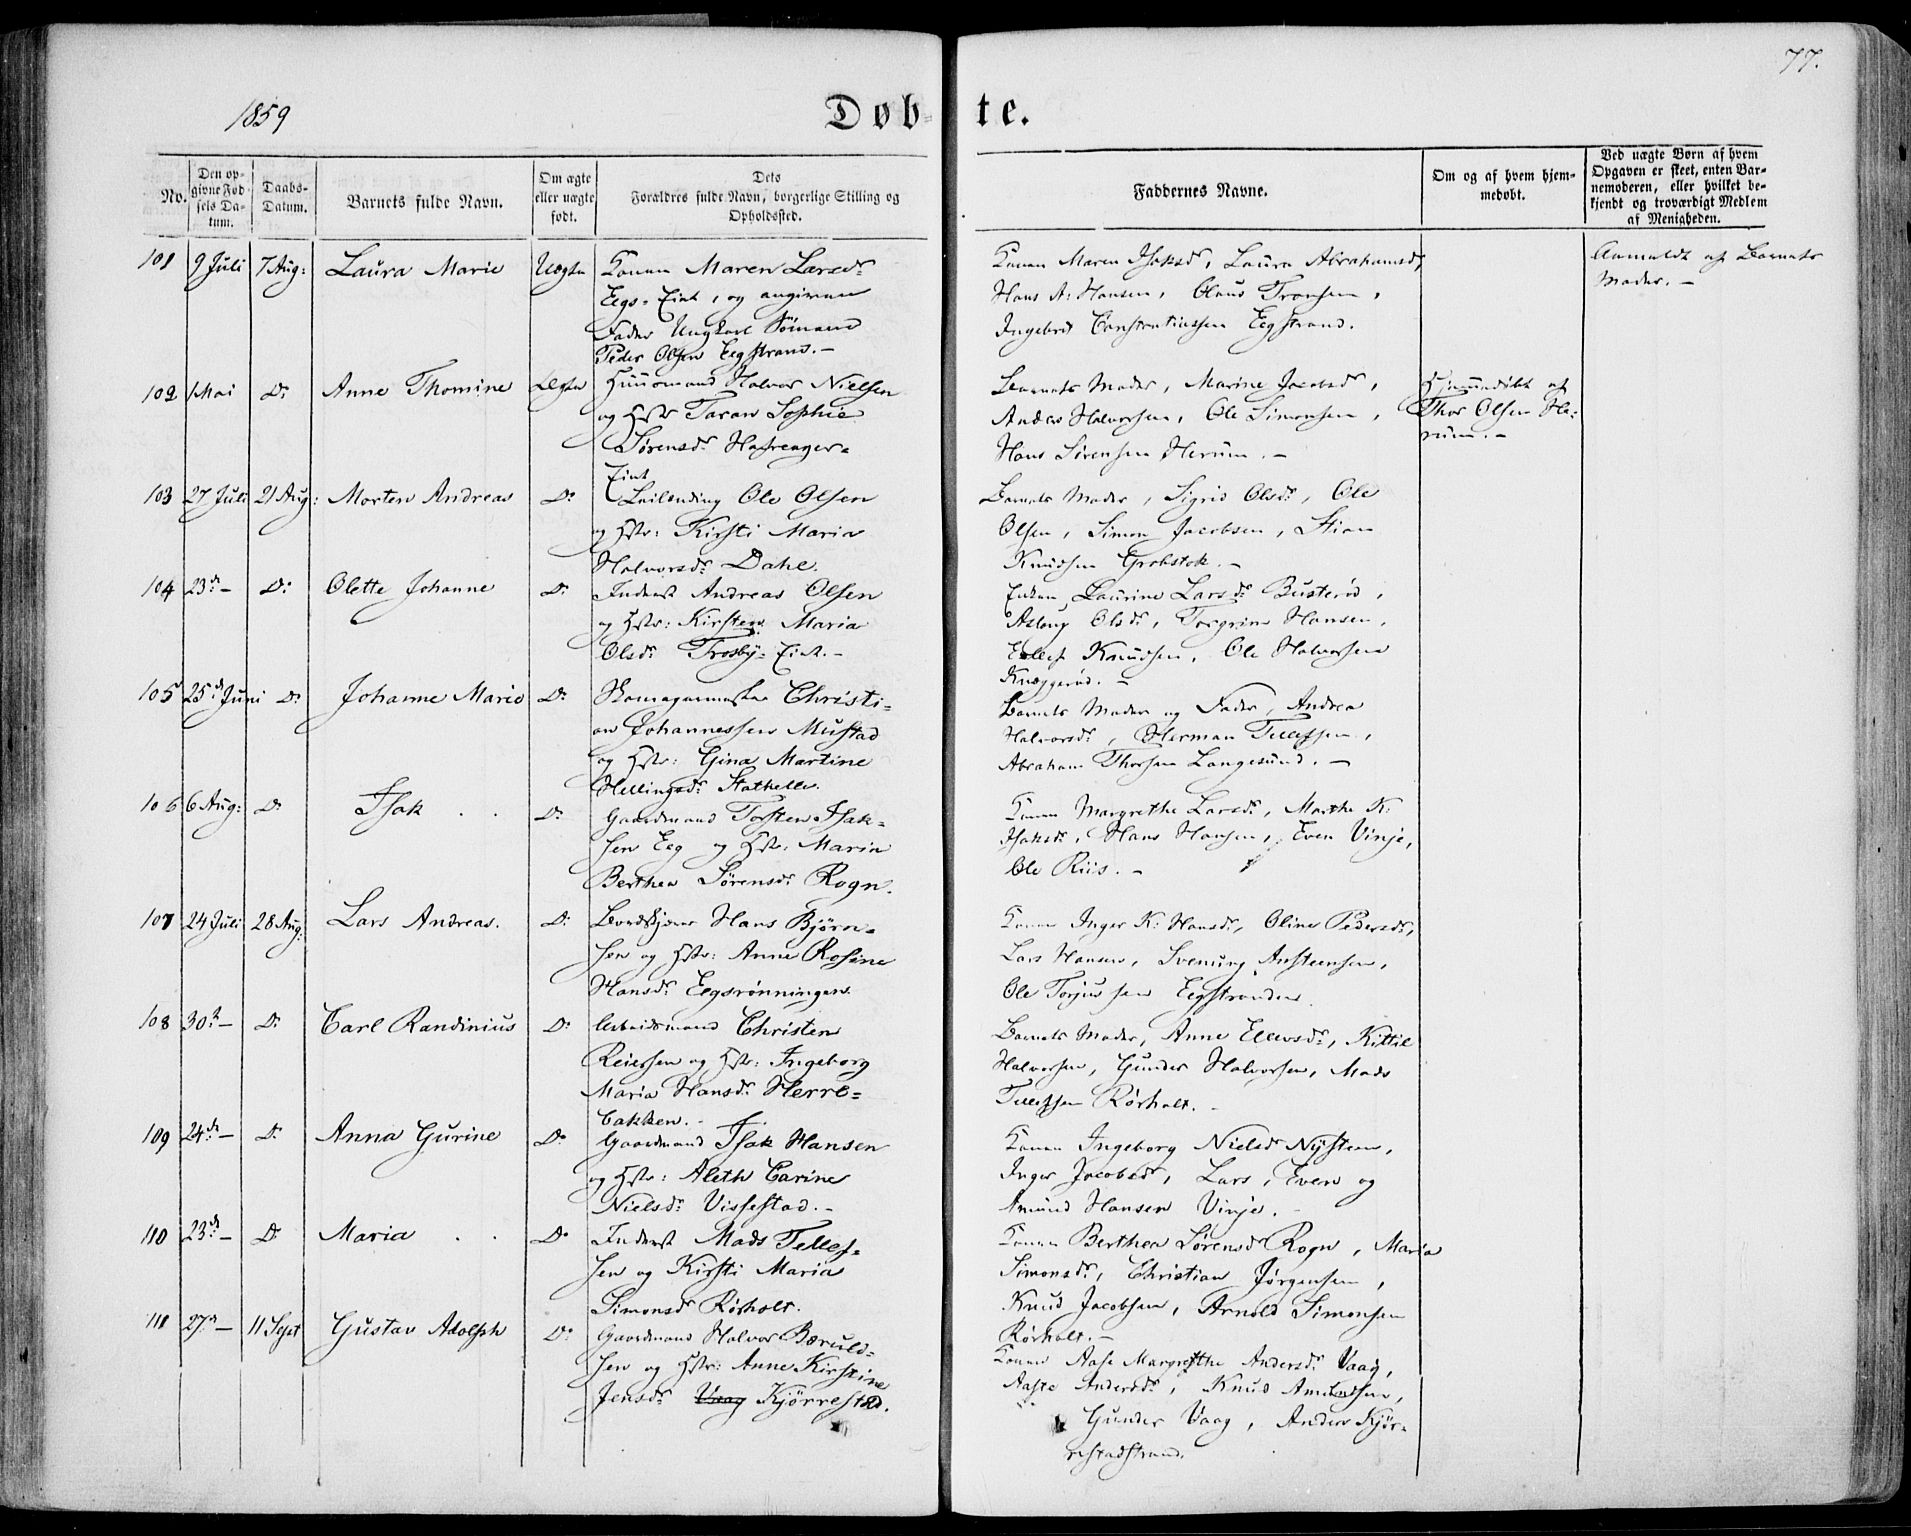 77.
1859
Døb- te.
No.
Den opgivne Fødsels Datum.
Daabs-Datum.
Barnets fulde Navn.
Om ægte eller uægte født.
Dets Forældres fulde Navn, borgerlige Stilling og Opholdsted.
Faddernes Navne.
Om og af hvem hjemmedøbt.
Ved uægte Børn af hvem Opgaven er skeet, enten Barnemoderen, eller hvilket bekjendt og troværdigt Medlem af Menigheden.
101 9 Juli 7 Aug: Laura Marie Uægte Konen Maren Larsdr
Eegs-Eiet, og angivne
Fader Ungkarl Sømand
Peder Olsen Eegstrand. -
Konen Maren Isaksdr, Laura Abrahamsdr,
Hans A: Hansen, Claus Tronsen,
Ingebret Constantiussen Eegstrand.
Anmeldt af Barnets
Moder. -
102 1 Mai Do Anne Thomine Ægte Huusmand Halvor Nielsen
og Hstr Taran Sophie
Sørensdr Hafreager-
Eiet
Barnets Moder, Marine Jacobsdr,
Anders Halvorsen, Ole Simonsen,
Hans Sørensen Herum. -
Hjemmedøbt af
Thor Olsen He-
rum. -
103 27 Juli 21 Aug: Morten Andreas Do Leilending Ole Olsen
og Hstr: Kirsti Maria
Halvorsdr Dahl.
Barnets Moder, Sigrid Olsdr, Ole
Olsen, Simon Jacobsen, Stian
Knudsen Grobstok. -
104 23de - Do Olette Johanne Do Inderst Andreas Olsen
og Hstr: Kirsten Maria
Olsdr Trosby-Eiet. -
Enken Laurine Larsdr Busterød,
Aslaug Olsdr, Torgrim Hansen,
Ellef Knudsen, Ole Halvorsen
Knæggerød. -
105 25de Juni Do Johanne Marie Do Skomagermester Christi-
an Johannessen Mustad
og Hstr: Gina Martine
Hellingsdr Stathelle.
Barnets Moder og Fader, Andrea
Halvorsdr, Herman Tellefsen,
Abraham Thorsen Langesund. -
106 6 Aug: Do Isak . . Do Gaardmand Torsten Isak-
sen Eeg og Hstr: Maria
Berthea Sørensdr Rogn.
Konen Margrethe Larsdr, Marthe K.
Isaksdr, Hans Hansen, Even Vinje,
Ole Riis. -
107 24 Juli 28 Aug: Lars Andreas. Do Bordskjærer Hans Bjørn-
sen og Hstr: Anne Rosine
Hansdr Eegsrønningen.
Konen Inger K: Hansdr, Oline Pedersdr,
Lars Hansen, Svenung Ansteensen,
Ole Torjussen Eegstranden.
108 30te - Do Carl Randinius Do Arbeidsmand Christen
Reiersen og Hstr: Ingeborg
Maria Hansdr Herre-
bakken. -
Barnets Moder, Anne Ellevsdr, Kittil
Halvorsen, Gunder Halvorsen, Mads
Tellefsen Rørholt. -
109 24de - Do Anna Gurine Do Gaardmand Isak Hansen
og Hstr: Aleth Carine
Nielsdr Vissestad. -
Konen Ingeborg Nielsdr Nysteen,
Inger Jacobsdr, Lars, Even og
Amund Hansen Vinje.
110 23de - Do Maria . . Do Inderst Mads Tellef-
sen og Kirsti Maria
Simonsdr Rørholt.
Konen Berthea Sørensdr Rogn, Maria
Simonsdr, Christian Jørgensen,
Knud Jacobsen, Arnold Simonsen
Rørholt. -
111 27de - 11 Sept Gustav Adolph Do Gaardmand Halvor Bæruld-
sen og Hstr: Anne Kirstine
Jensdr Vaag Kjørrestad.
Konen Aase Margrethe Andersdr Vaag,
Aaste Andersdr, Knud Amundsen,
Gunder Vaag, Anders Kjør-
restadstrand.